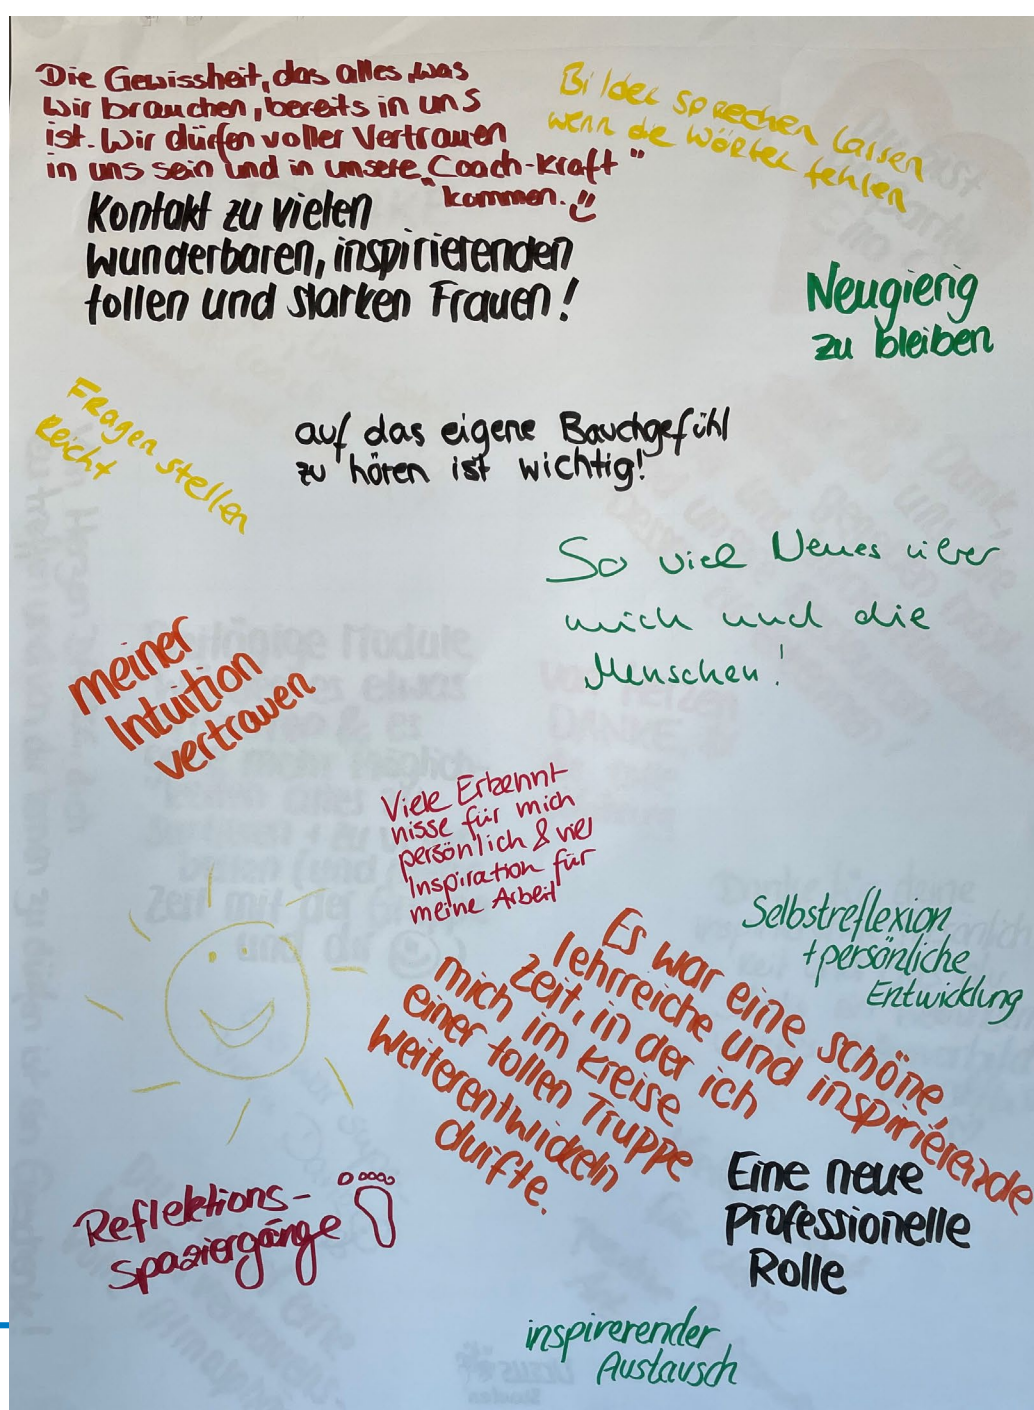 Die Gewissheit, das alles, was
wir brauchen, bereits in uns
ist. Wir dürfen voller Vertrauen
in uns sein und in unsere „Coach-Kraft"
kommen.
Bilder sprechen lassen
wenn die Wörter fehlen
Kontakt zu vielen
wunderbaren, inspirierenden
tollen und starken Frauen!
Neugierig
zu bleiben
Fragen stellen
reicht
auf das eigene Bauchgefühl
zu hören ist wichtig!
So viel Neues über
mich und die
Menschen!
meiner
Intuition
vertrauen
Viele Erkennt
nisse für mich
persönlich & viel
Inspiration für
meine Arbeit
Selbstreflexion
+ persönliche
Entwicklung
Es war eine schöne,
lehrreiche und inspirierende
Zeit, in der ich
mich im Kreise
einer tollen Truppe
weiterentwickeln
durfte.
Eine neue
professionelle
Rolle
Reflektions-
spaziergänge
inspirerender
Austausch